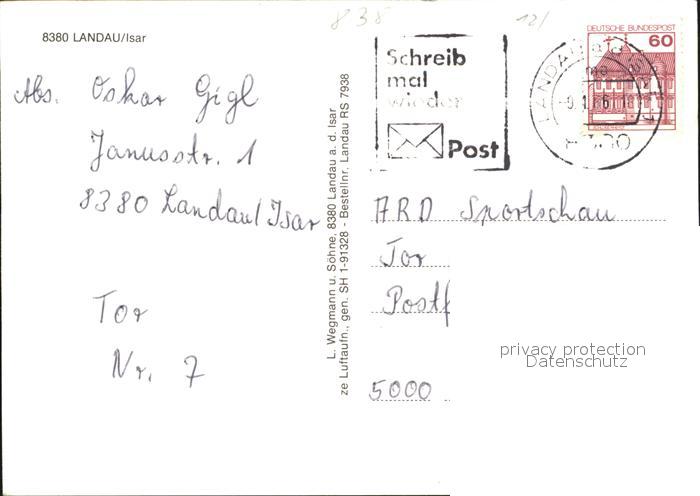 838
121
8380 LANDAU/Isar
Abs. Oskar Gigl
Janusstr. 1
8380 Landau/Isar
Tor
Nr. 7
L. Wegmann u. Söhne, 8380 Landau a. d. Isar
ze Luftaufn., gen. SH 1-91328 - Bestellnr. Landau RS 7938
Schreib
mal
wieder
Post
LANDAU
DEUTSCHE BUNDESPOST
60
ARD Sportschau
Tor
Postf
privacy protection
Datenschutz
5000